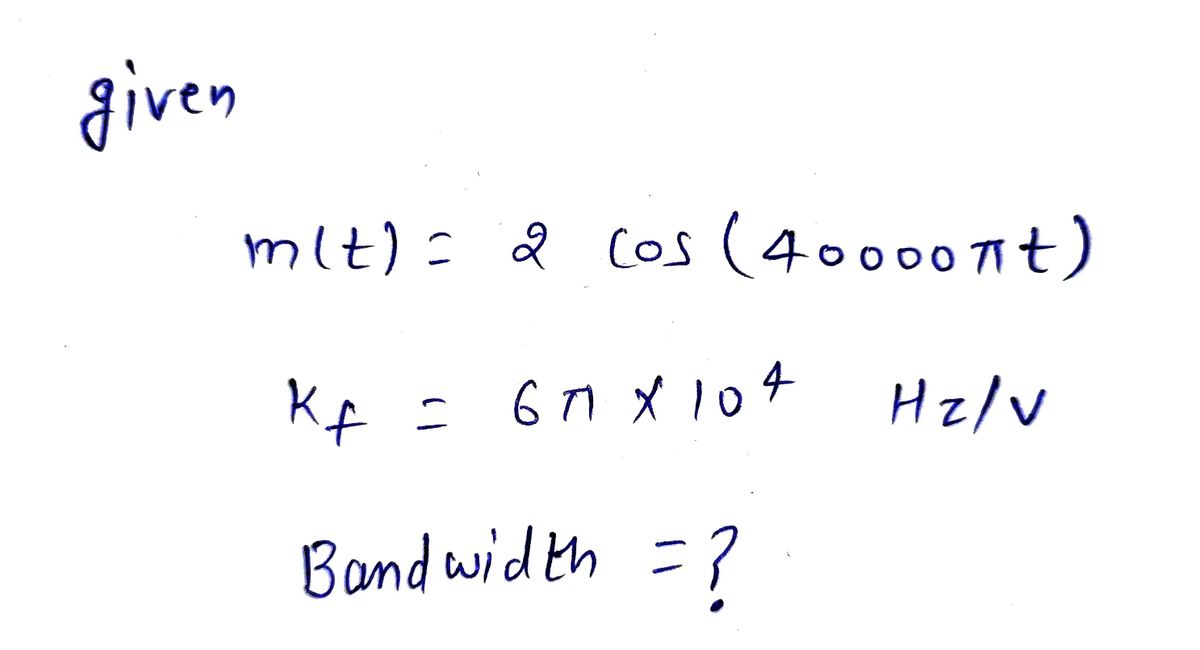 given
m(t) = 2 cos (40000πt)
Kf = 6π × 10⁴ Hz/V
Bandwidth = ?